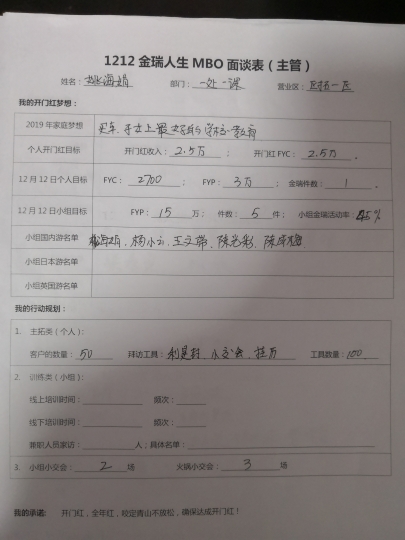 1212 金瑞人生 MBO 面谈表（主管）
姓名： 海娟 部门： 一处一课 营业区： 一区
我的开门红梦想：
2019 年家庭梦想 买车、子女上最好的学校教育
个人开门红目标 开门红收入： 2.5万 ； 开门红 FYC： 2.5万 .
12 月 12 日个人目标 FYC： 2700 ； FYP： 3万 ； 金瑞件数： 1 .
12 月 12 日小组目标 FYP： 15 万； 件数： 5 件； 小组金瑞活动率： %
小组国内游名单 海娟、杨小、王文 、陈 彩、陈 梅
小组日本游名单
小组英国游名单
我的行动规划：
1. 主拓类（个人）：
客户的数量： 50 拜访工具： 利是封、小交会、挂历 工具数量： 100
2. 训练类（小组）
线上培训时间： 频次：
线下培训时间： 频次：
兼职人员家访： 人；具体名单：
3. 小组小交会： 2 场 火锅小交会： 3 场
我的承诺： 开门红，全年红，咬定青山不放松，确保达成开门红！